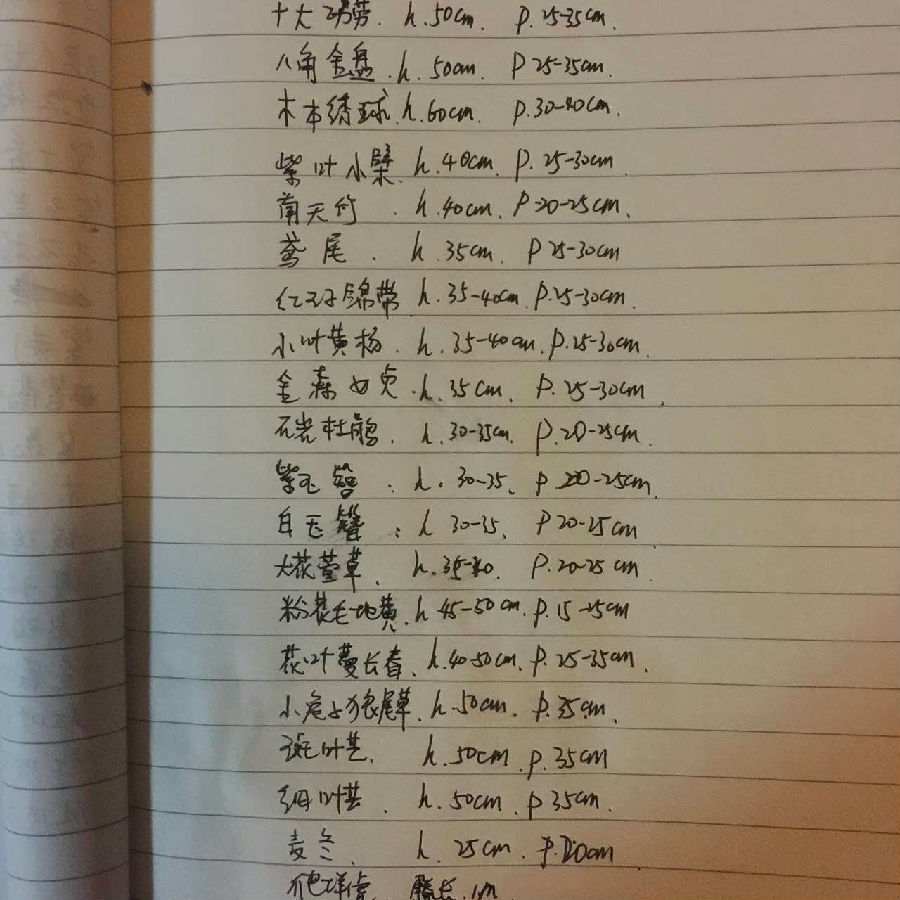 十大功劳 h.50cm. p.25-35cm.
八角金盘.h.50cm. P 25-35cm.
木本绣球.h.60cm. p.30-40cm.
紫叶小檗.h.40cm.p.25-30cm
南天竹.h.40cm.p 20-25cm.
鸢尾.h.35cm.p 25-30cm
红王子锦带 h.35-40cm.p.25-30cm.
小叶黄杨.h.35-40cm.p.25-30cm.
金森女贞.h.35cm.p.25-30cm.
石岩杜鹃.h.30-35cm.p.20-25cm.
紫玉簪:h.30-35.p 20-25cm.
白玉簪:h 30-35.p 20-25cm
大花萱草.h.35-40.p.20-25cm.
粉花毛地黄.h 45-50cm.p.15-25cm
花叶蔓长春.h.40-50cm.p.25-35cm.
小兔子狼尾草.h.50cm.p.35cm.
斑叶芒.h.50cm.p.35cm
细叶芒.h.50cm.p 35cm.
麦冬.h.25cm.p.20cm
藤长.1m